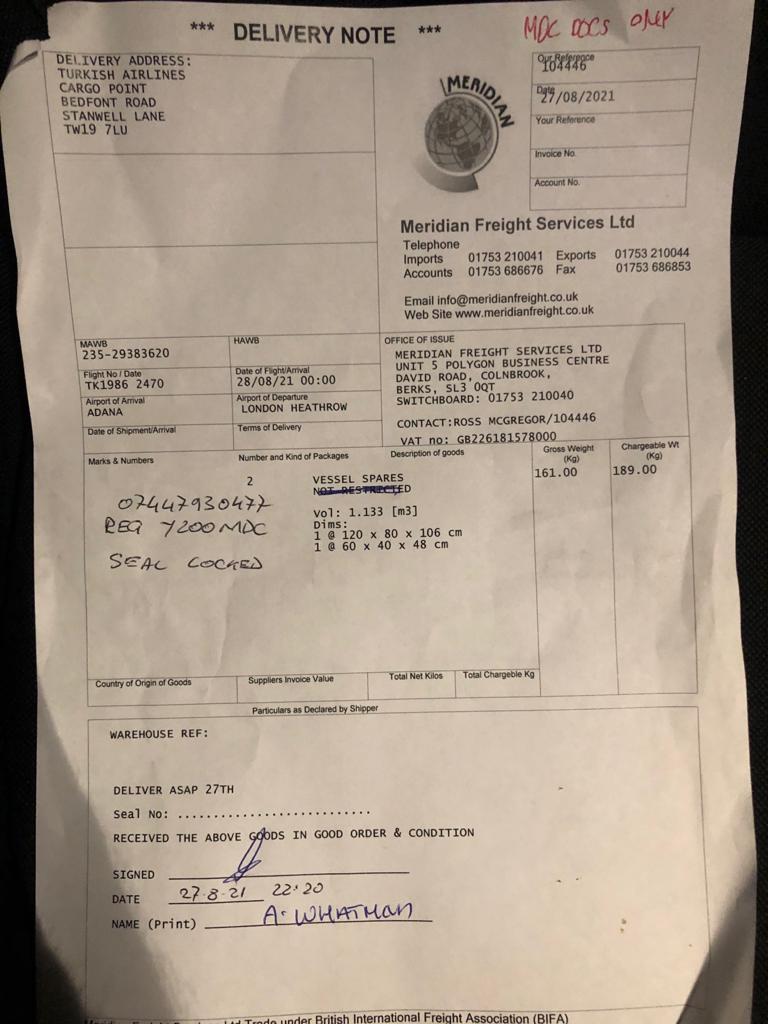 *** DELIVERY NOTE ***
MDC DOCS ONLY
DELIVERY ADDRESS:
TURKISH AIRLINES
CARGO POINT
BEDFONT ROAD
STANWELL LANE
TW19 7LU
MERIDIAN
Our Reference
104446
Date
27/08/2021
Your Reference
Invoice No.
Account No.
Meridian Freight Services Ltd
Telephone
Imports 01753 210041 Exports 01753 210044
Accounts 01753 686676 Fax 01753 686853
Email info@meridianfreight.co.uk
Web Site www.meridianfreight.co.uk
MAWB
235-29383620
HAWB
Flight No / Date
TK1986 2470
Date of Flight/Arrival
28/08/21 00:00
Airport of Arrival
ADANA
Airport of Departure
LONDON HEATHROW
Date of Shipment/Arrival
Terms of Delivery
OFFICE OF ISSUE
MERIDIAN FREIGHT SERVICES LTD
UNIT 5 POLYGON BUSINESS CENTRE
DAVID ROAD, COLNBROOK,
BERKS, SL3 0QT
SWITCHBOARD: 01753 210040
CONTACT:ROSS MCGREGOR/104446
VAT no: GB226181578000
Marks & Numbers
Number and Kind of Packages
Description of goods
Gross Weight (Kg)
Chargeable Wt (Kg)
2
VESSEL SPARES
NOT RESTRICTED
161.00
189.00
Vol: 1.133 [m3]
Dims:
1 @ 120 x 80 x 106 cm
1 @ 60 x 40 x 48 cm
07447930477
REG Y200MDC
SEAL LOCKED
Country of Origin of Goods
Suppliers Invoice Value
Total Net Kilos
Total Chargeble Kg
Particulars as Declared by Shipper
WAREHOUSE REF:
DELIVER ASAP 27TH
Seal No: ...........................
RECEIVED THE ABOVE GOODS IN GOOD ORDER & CONDITION
SIGNED
DATE 27-8-21 22:20
NAME (Print) A. WHATMAN
Ltd Trade under British International Freight Association (BIFA)